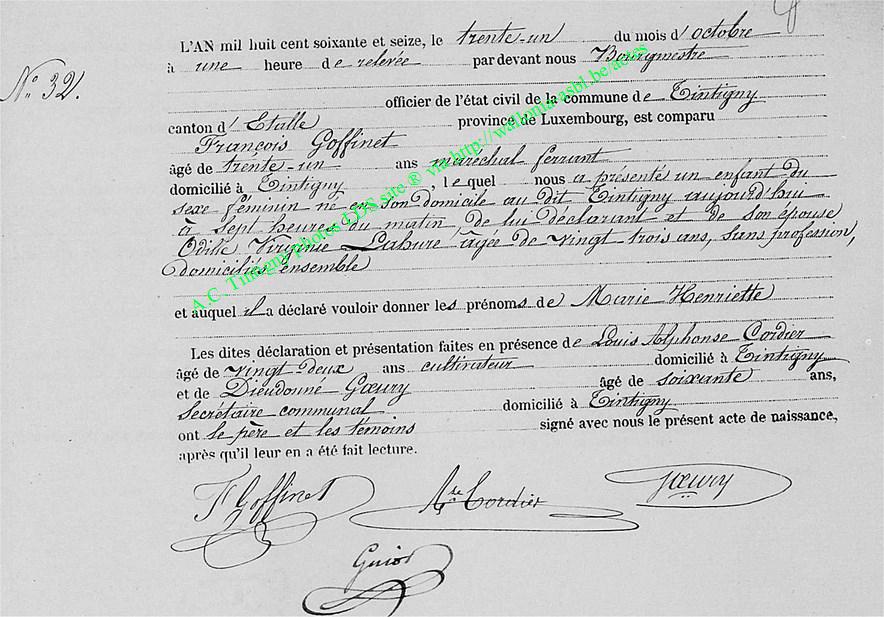 L'AN mil huit cent soixante et seize, le trente-un du mois d'octobre
à une heure de relevée par devant nous Bourgmestre
N° 32.
officier de l'état civil de la commune de Tintigny
canton d'Etalle province de Luxembourg, est comparu
François Goffinet
âgé de trente-un ans maréchal ferrant
domicilié à Tintigny, lequel nous a présenté un enfant du
sexe féminin né en son domicile au dit Tintigny aujourd'hui
à sept heures du matin, de lui déclarant et de son epouse
Odille Virginie Lahure agée de vingt trois ans, sans profession,
domiciliés ensemble
et auquel il a déclaré vouloir donner les prénoms de Marie Henriette
Les dites déclaration et présentation faites en présence de Louis Alphonse Cordier
âgé de vingt deux ans cultivateur domicilié à Tintigny
et de Dieudonné Goeury âgé de soixante ans,
secrétaire communal domicilié à Tintigny
ont le père et les témoins signé avec nous le présent acte de naissance,
après qu'il leur en a été fait lecture.
F Goffinet Cordier Goeury
A.C. Tintigny photos LDS site ® via http://wallonia-asbl.be/actes